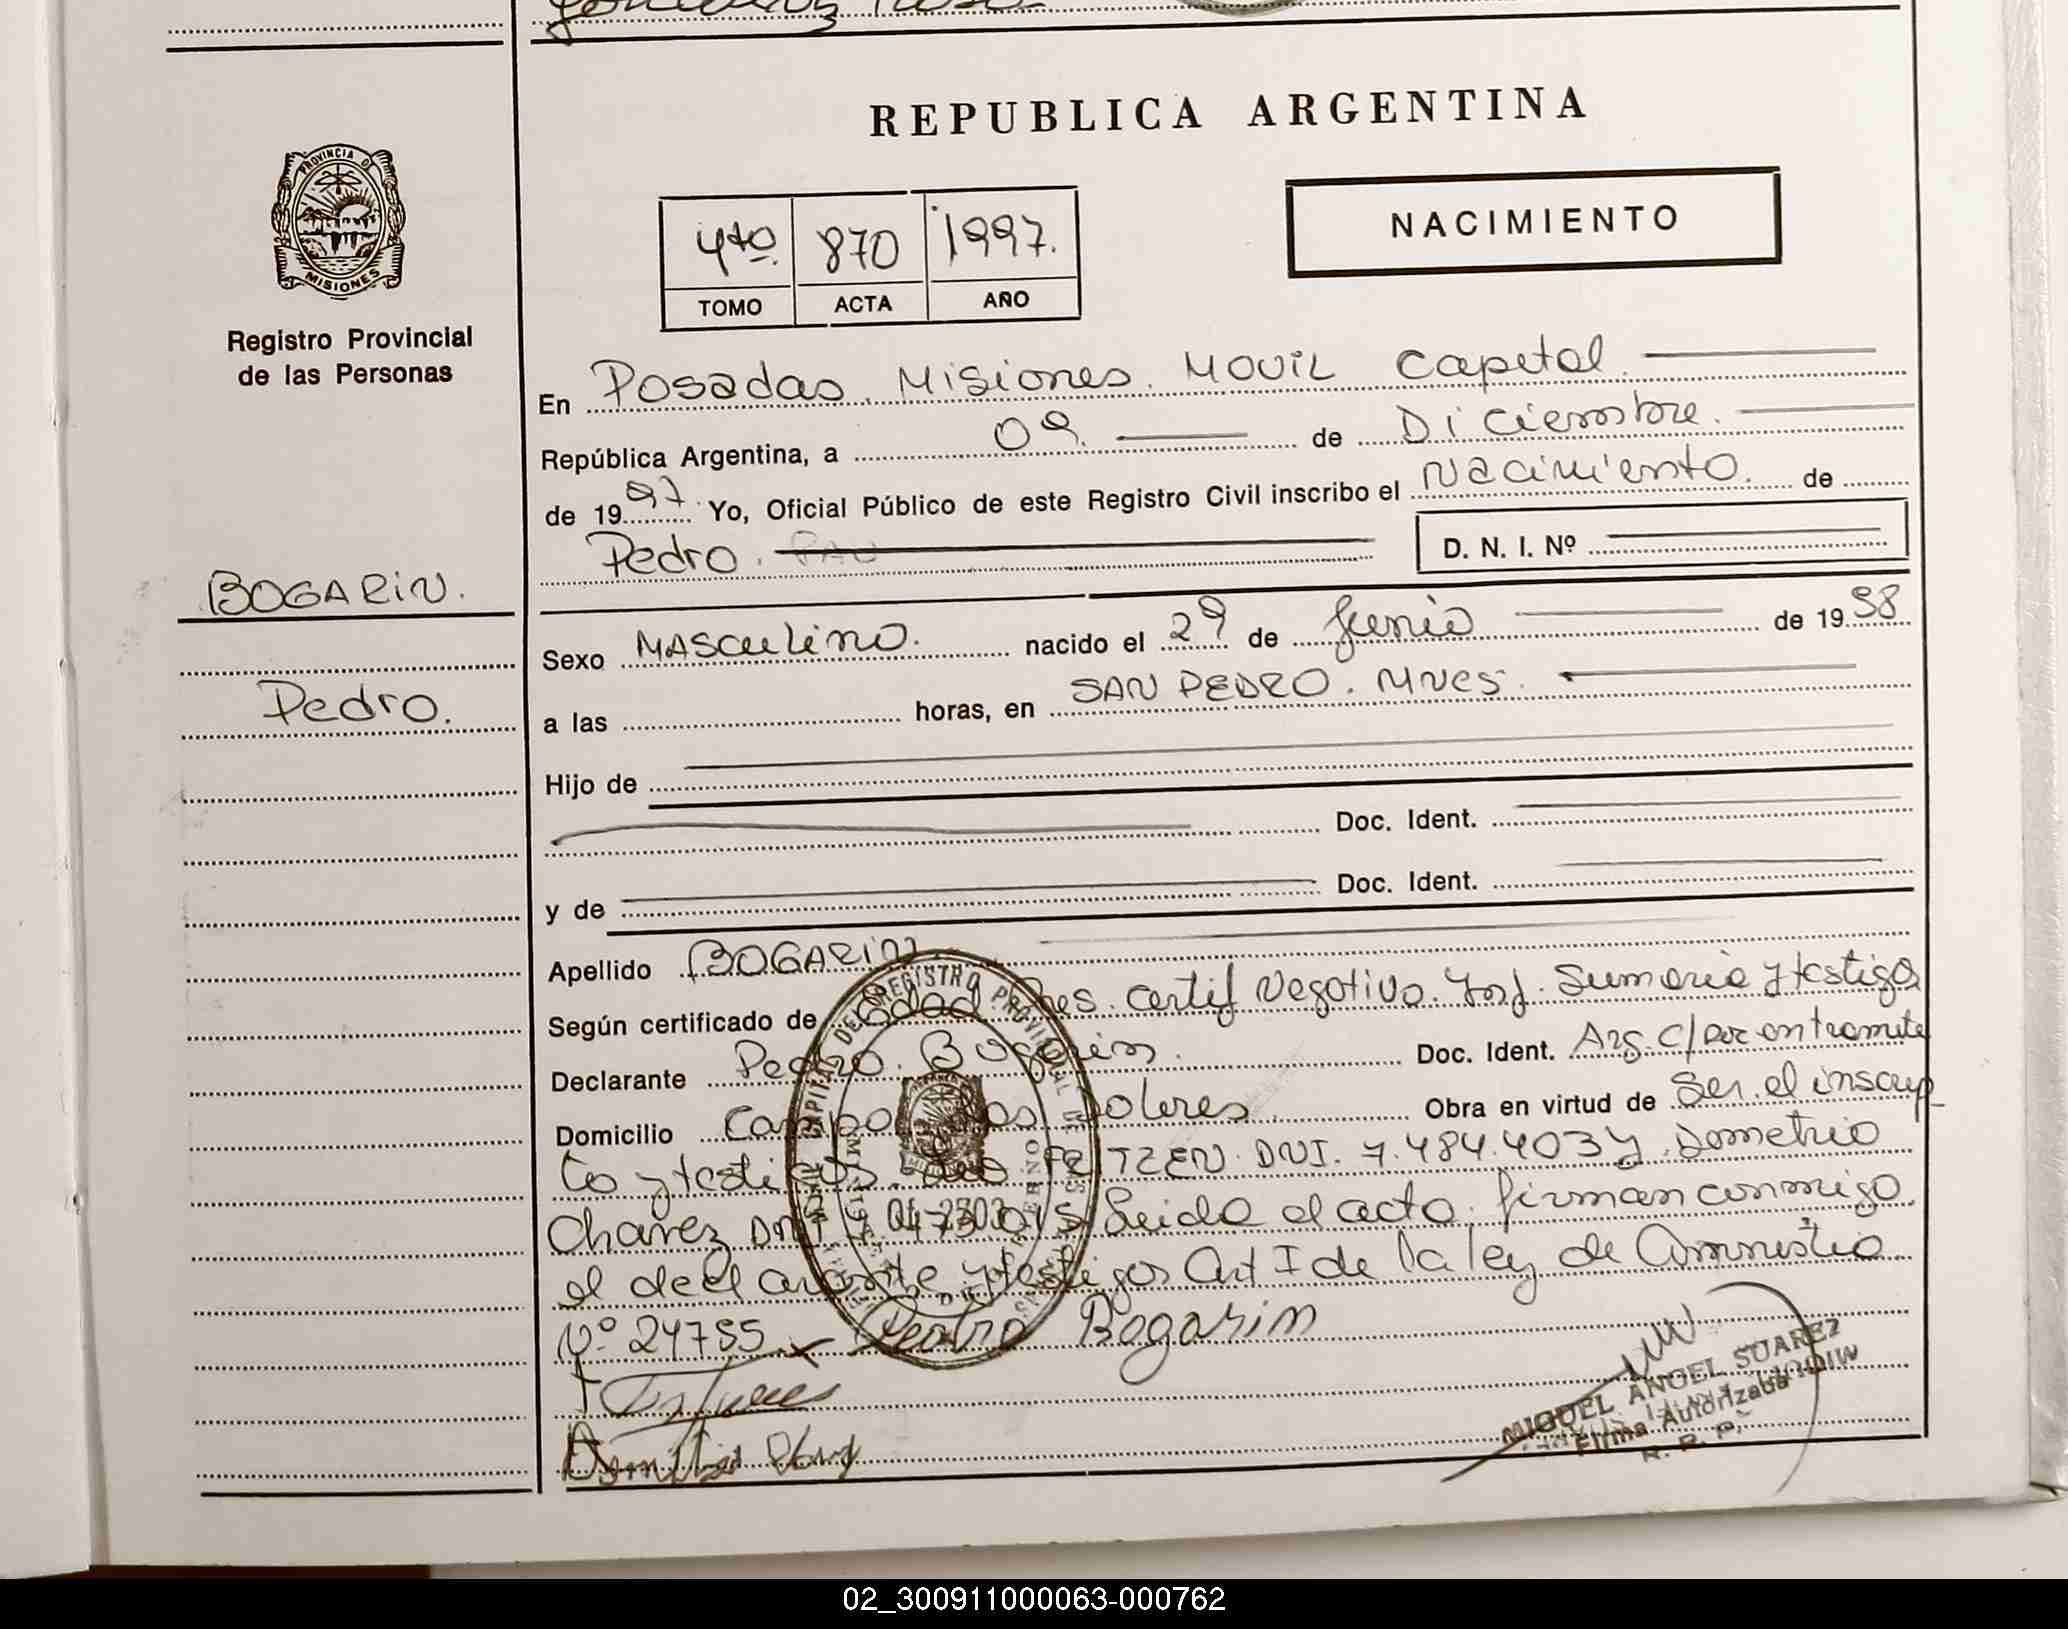 REPUBLICA ARGENTINA
PROVINCIA D
MISIONES
Registro Provincial
de las Personas
4to 870 1997.
TOMO ACTA AÑO
NACIMIENTO
En Posadas. Misiones. MOVIL Capital.
República Argentina, a 09. de Diciembre.
de 1997. Yo, Oficial Público de este Registro Civil inscribo el Nacimiento. de
Pedro. D. N. I. Nº
BOGARIN.
Sexo MASCULINO. nacido el 29 de Junio de 1938
Pedro.
a las horas, en SAN PEDRO. Mnes.
Hijo de
Doc. Ident.
y de Doc. Ident.
Apellido BOGARIN
Según certificado de Edad Pres. Certif Negativo. Inf. Sumaria y testigos
Declarante Pedro. Bogarin. Doc. Ident. Arg. C/Doc en tramite
Domicilio Campo Los Dolores. Obra en virtud de Ser el inscrip
to y testigos. FRITZEN. DNI. 7.484.403 y Dometrio
Chavez DNI Leido el acta, firman conmigo
el declarante y testigos Art I de la ley de Amnistia
Nº 24755 x Pedro Bogarim
MIGUEL ANGEL SUAREZ
Firma Autorizada
R. P. P.
02_300911000063-000762